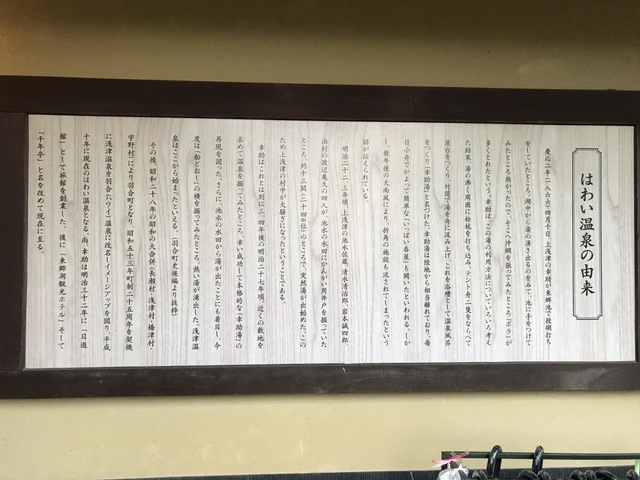 はわい温泉の由来
慶応二年(一八六六)四月十日、上浅津の幸助が東郷池で投網打ち
をしていたところ、湖中から湯の湧き出るのをみて、池に手をつけて
みたところ熱かったので、そこへ沖網を張ってみたところ「ボラ」が
多くとれたという。幸助は、この湯の利用方法についていろいろ考え
た結果、湯の沸く周囲に松杭を打ち込み、テント舟二隻をならべて
屋台をつくり、竹筒で湯を舟に汲み上げ、これを浴槽として温泉風呂
をつくり、「幸助湯」と名づけた。幸助湯は陸地から相当離れており、毎
日小舟でかよって簡単な「いっぱい呑屋」も開いたといわれる。しか
し、数年後の大南風により、折角の施設も流されてしまったという
話が伝えられている。
明治二十二、三年頃、上浅津の池水佐蔵、清水清治郎、岩本誠四郎、
泊村の渡辺亀久の四人が、池水の水田にかんがい用井戸を掘っていた
ところ、約十三間(二十四m位)のところで、天然湯が出始めた。この
ため上浅津の村中が大騒ぎになったということである。
幸助はこれとは別に三、四年後の明治二十七年頃、近くの敷地を
求めて温泉を掘ってみたところ、幸い成功して本格的な「幸助湯」の
再現を図った。さらに、池水の水田から湯が出たことにも着目し、今
度は「船どおし」の横を掘ってみたところ、熱い湯が湧出した。浅津温
泉はここから始まったといえる。(羽合町史後編より抜粋)
その後、昭和二十八年の昭和の大合併(長瀬村・浅津村・橋津村・
宇野村)により羽合町となり、昭和五十三年町制二十五周年を契機
に浅津温泉を羽合(ハワイ)温泉に改名しイメージアップを図り、平成
十年に現在のはわい温泉となる。尚、幸助は明治三十二年に「日進
館」として旅館を創業した。後に「東郷湖観光ホテル」、そして
「千年亭」と名を改めて現在に至る。